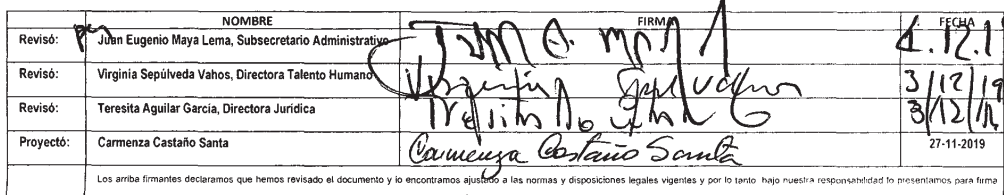 NOMBRE FIRMA FECHA
Revisó: Juan Eugenio Maya Lema, Subsecretario Administrativo
Revisó: Virginia Sepúlveda Vahos, Directora Talento Humano Virginia Sepúlveda 3/12/19
Revisó: Teresita Aguilar García, Directora Jurídica 3/12/19
Proyectó: Carmenza Castaño Santa Carmenza Castaño Santa 27-11-2019
Los arriba firmantes declaramos que hemos revisado el documento y lo encontramos ajustado a las normas y disposiciones legales vigentes y por lo tanto bajo nuestra responsabilidad lo presentamos para firma